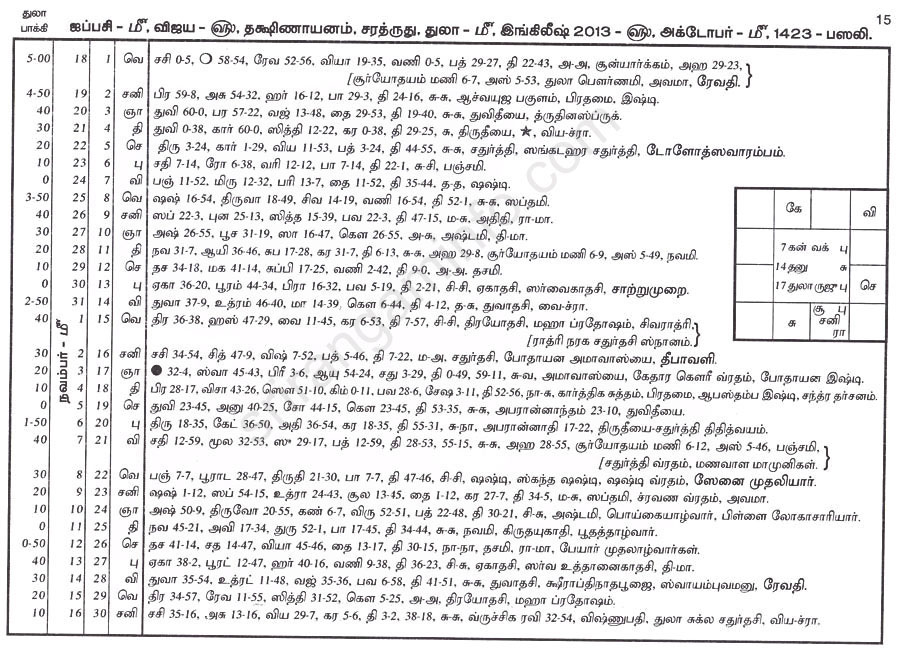 15
துலா
பாக்கி
ஐப்பசி - மீ, விஜய - ஹு, தக்ஷிணாயனம், சரத்ருது, துலா - மீ, இங்கிலீஷ் 2013 - ஹு, அக்டோபர் - மீ, 1423 - பஸலி.
5-00 18 1 வெ சசி 0-5, ❍ 58-54, ரேவ 52-56, வியா 19-35, வணி 0-5, பத் 29-27, தி 22-43, அ-அ, சூன்யார்க்கம், அஹ 29-23,
[சூர்யோதயம் மணி 6-7, அஸ் 5-53, துலா பௌர்ணமி, அவமா, ரேவதி.
4-50 19 2 சனி பிர 59-8, அசு 54-32, ஹர் 16-12, பா 29-3, தி 24-16, சு-சு, ஆச்வயுஜ பகுளம், பிரதமை, இஷ்டி.
40 20 3 ஞா துவி 60-0, பர 57-22, வஜ் 13-48, தை 29-53, தி 19-40, சு-சு, துவிதீயை, த்ருதினஸ்ப்ருக்.
30 21 4 தி துவி 0-38, கார் 60-0, ஸித்தி 12-22, கர 0-38, தி 29-25, சு, திருதீயை, ★, விய-ச்ரா.
20 22 5 செ திரு 3-24, கார் 1-29, விய 11-53, பத் 3-24, தி 44-55, சு-சு, சதுர்த்தி, ஸங்கடஹர சதுர்த்தி, டோளோத்ஸவாரம்பம்.
10 23 6 பு சதி 7-14, ரோ 6-38, வரி 12-12, பா 7-14, தி 22-1, சு-சி, பஞ்சமி.
0 24 7 வி பஞ் 11-52, மிரு 12-32, பரி 13-7, தை 11-52, தி 35-44, த-த, ஷஷ்டி.
3-50 25 8 வெ ஷஷ் 16-54, திருவா 18-49, சிவ 14-19, வணி 16-54, தி 52-1, சு-சு, ஸப்தமி.
40 26 9 சனி ஸப் 22-3, புன 25-13, ஸித்த 15-39, பவ 22-3, தி 47-15, ம-சு, அதிதி, ரா-மா.
30 27 10 ஞா அஷ் 26-55, பூச 31-19, ஸா 16-47, கௌ 26-55, அ-சு, அஷ்டமி, தி-மா.
20 28 11 தி நவ 31-7, ஆயி 36-46, சுப 17-28, கர 31-7, தி 6-13, சு-சு, அஹ 29-8, சூர்யோதயம் மணி 6-9, அஸ் 5-49, நவமி.
10 29 12 செ தச 34-18, மக 41-14, சுப்பி 17-25, வணி 2-42, தி 9-0, அ-அ, தசமி.
0 30 13 பு ஏகா 36-20, பூரம் 44-34, பிரா 16-32, பவ 5-19, தி 2-21, சி-சி, ஏகாதசி, ஸர்வைகாதசி, சாற்றுமுறை.
2-50 31 14 வி துவா 37-9, உத்ரம் 46-40, மா 14-39, கௌ 6-44, தி 4-12, த-சு, துவாதசி, வை-ச்ரா.
நவம்பர் - மீ
40 1 15 வெ திர 36-38, ஹஸ் 47-29, வை 11-45, கர 6-53, தி 7-57, சி-சி, திரயோதசி, மஹா ப்ரதோஷம், சிவராத்ரி,
[ராத்ரி நரக சதுர்தசி ஸ்நானம்.
30 2 16 சனி சசி 34-54, சித் 47-9, விஷ் 7-52, பத் 5-46, தி 7-22, ம-அ, சதுர்தசி, போதாயன அமாவாஸ்யை, தீபாவளி.
20 3 17 ஞா ● 32-4, ஸ்வா 45-43, பிரீ 3-6, ஆயு 54-24, சது 3-29, தி 0-49, 59-11, சு-வ, அமாவாஸ்யை, கேதார கௌரீ வ்ரதம், போதாயன இஷ்டி.
10 4 18 தி பிர 28-17, விசா 43-26, ஸௌ 51-10, கிம் 0-11, பவ 28-6, சேஷ 3-11, தி 52-56, நா-சு, கார்த்திக சுத்தம், பிரதமை, ஆபஸ்தம்ப இஷ்டி, சந்த்ர தர்சனம்.
0 5 19 செ துவி 23-45, அனு 40-25, சோ 44-15, கௌ 23-45, தி 53-35, சு-சு, அபரான்னாந்தம் 23-10, துவிதீயை.
1-50 6 20 பு திரு 18-35, கேட் 36-50, அதி 36-54, கர 18-35, தி 55-31, சு-நா, அபரான்னாதி 17-22, திருதீயை-சதுர்த்தி திதித்வயம்.
40 7 21 வி சதி 12-59, மூல 32-53, ஸு 29-17, பத் 12-59, தி 28-53, 55-15, சு-சு, அஹ 28-55, சூர்யோதயம் மணி 6-12, அஸ் 5-46, பஞ்சமி,
[சதுர்த்தி வ்ரதம், மணவாள மாமுனிகள்.
30 8 22 வெ பஞ் 7-7, பூராட 28-47, திருதி 21-30, பா 7-7, தி 47-46, சி-சி, ஷஷ்டி, ஸ்கந்த ஷஷ்டி, ஷஷ்டி வ்ரதம், ஸேனை முதலியார்.
20 9 23 சனி ஷஷ் 1-12, ஸப் 54-15, உத்ரா 24-43, சூல 13-45, தை 1-12, கர 27-7, தி 34-5, ம-சு, ஸப்தமி, ச்ரவண வ்ரதம், அவமா.
10 10 24 ஞா அஷ் 50-9, திருவோ 20-55, கண் 6-7, விரு 52-51, பத் 22-48, தி 30-21, சி-சு, அஷ்டமி, பொய்கையாழ்வார், பிள்ளை லோகாசாரியார்.
0 11 25 தி நவ 45-21, அவி 17-34, துரு 52-1, பா 17-45, தி 34-44, சு-சு, நவமி, கிருதயுகாதி, பூதத்தாழ்வார்.
0-50 12 26 செ தச 41-14, சத 14-47, வியா 45-46, தை 13-17, தி 30-15, நா-நா, தசமி, ரா-மா, பேயார் முதலாழ்வார்கள்.
40 13 27 பு ஏகா 38-2, பூரட் 12-47, ஹர் 40-16, வணி 9-38, தி 36-23, சி-சு, ஏகாதசி, ஸர்வ உத்தானைகாதசி, தி-மா.
30 14 28 வி துவா 35-54, உத்ரட் 11-48, வஜ் 35-36, பவ 6-58, தி 41-51, சு-சு, துவாதசி, க்ஷீராப்திநாதபூஜை, ஸ்வாயம்புவமனு, ரேவதி.
20 15 29 வெ திர 34-57, ரேவ 11-55, ஸித்தி 31-52, கௌ 5-25, அ-அ, திரயோதசி, மஹா ப்ரதோஷம்.
10 16 30 சனி சசி 35-16, அசு 13-16, விய 29-7, கர 5-6, தி 3-2, 38-18, சு-சு, வ்ருச்சிக ரவி 32-54, விஷ்ணுபதி, துலா சுக்ல சதுர்தசி, விய-ச்ரா.
கே வி
7 கன் வக் பு
14 தனு சு
17 துலா ருஜு பு செ
சு சூ பு
சனி
ரா